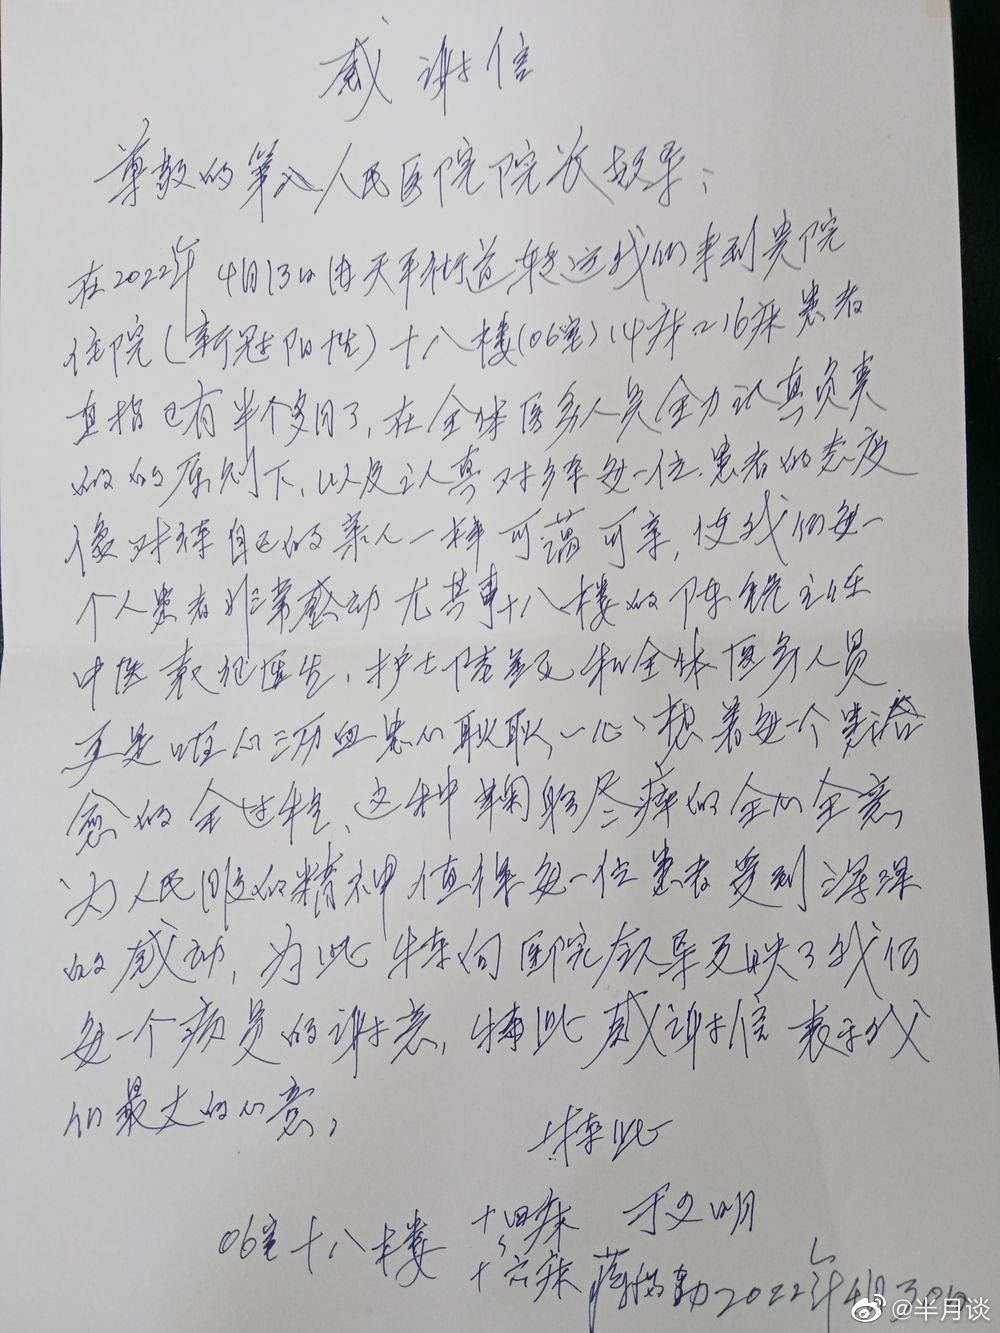 感谢信
尊敬的第八人民医院院长领导：
在2022年4月13日由天平街道转运我们来到贵院
住院(新冠阳性)十八楼(06室)14床 16床患者
直指已有半个多月了，在全体医务人员全力认真负责
的的原则下，以及认真对待每一位患者的态度
像对待自己的亲人一样可蔼可亲，使我们每一
个人患者非常感动尤其事十八楼的陈锐主任
中医 医生，护士陆 和全体医务人员
更是 心 血 心耿耿，一心想着每一个患者
愈的全过程，这种鞠躬尽瘁的全心全意
为人民服的精神值得每一位患者受到深深
的感动，为此特向医院领导反映了我们
每一个病员的谢意，特此感谢信表示我
们最大的心意，
特此
06室十八楼 十四床 于文明
十六床 2022年4月30日
@半月谈